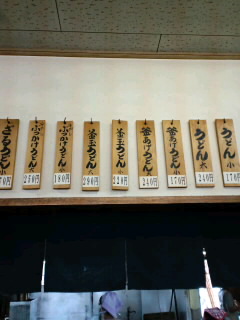 うどん 小
170円
うどん 大
240円
釜あげうどん 小
170円
釜あげうどん 大
240円
釜玉うどん 小
220円
釜玉うどん 大
290円
ぶっかけうどん 小
180円
ぶっかけうどん 大
250円
ざるうどん 小